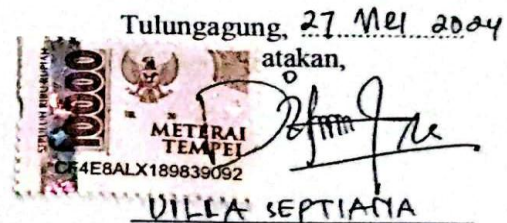 Tulungagung, 27 Mei 2024
atakan,
SEPULUH RIBU RUPIAH
10000
METERAI
TEMPEL
CF4E8ALX189839092
SEPTIANA